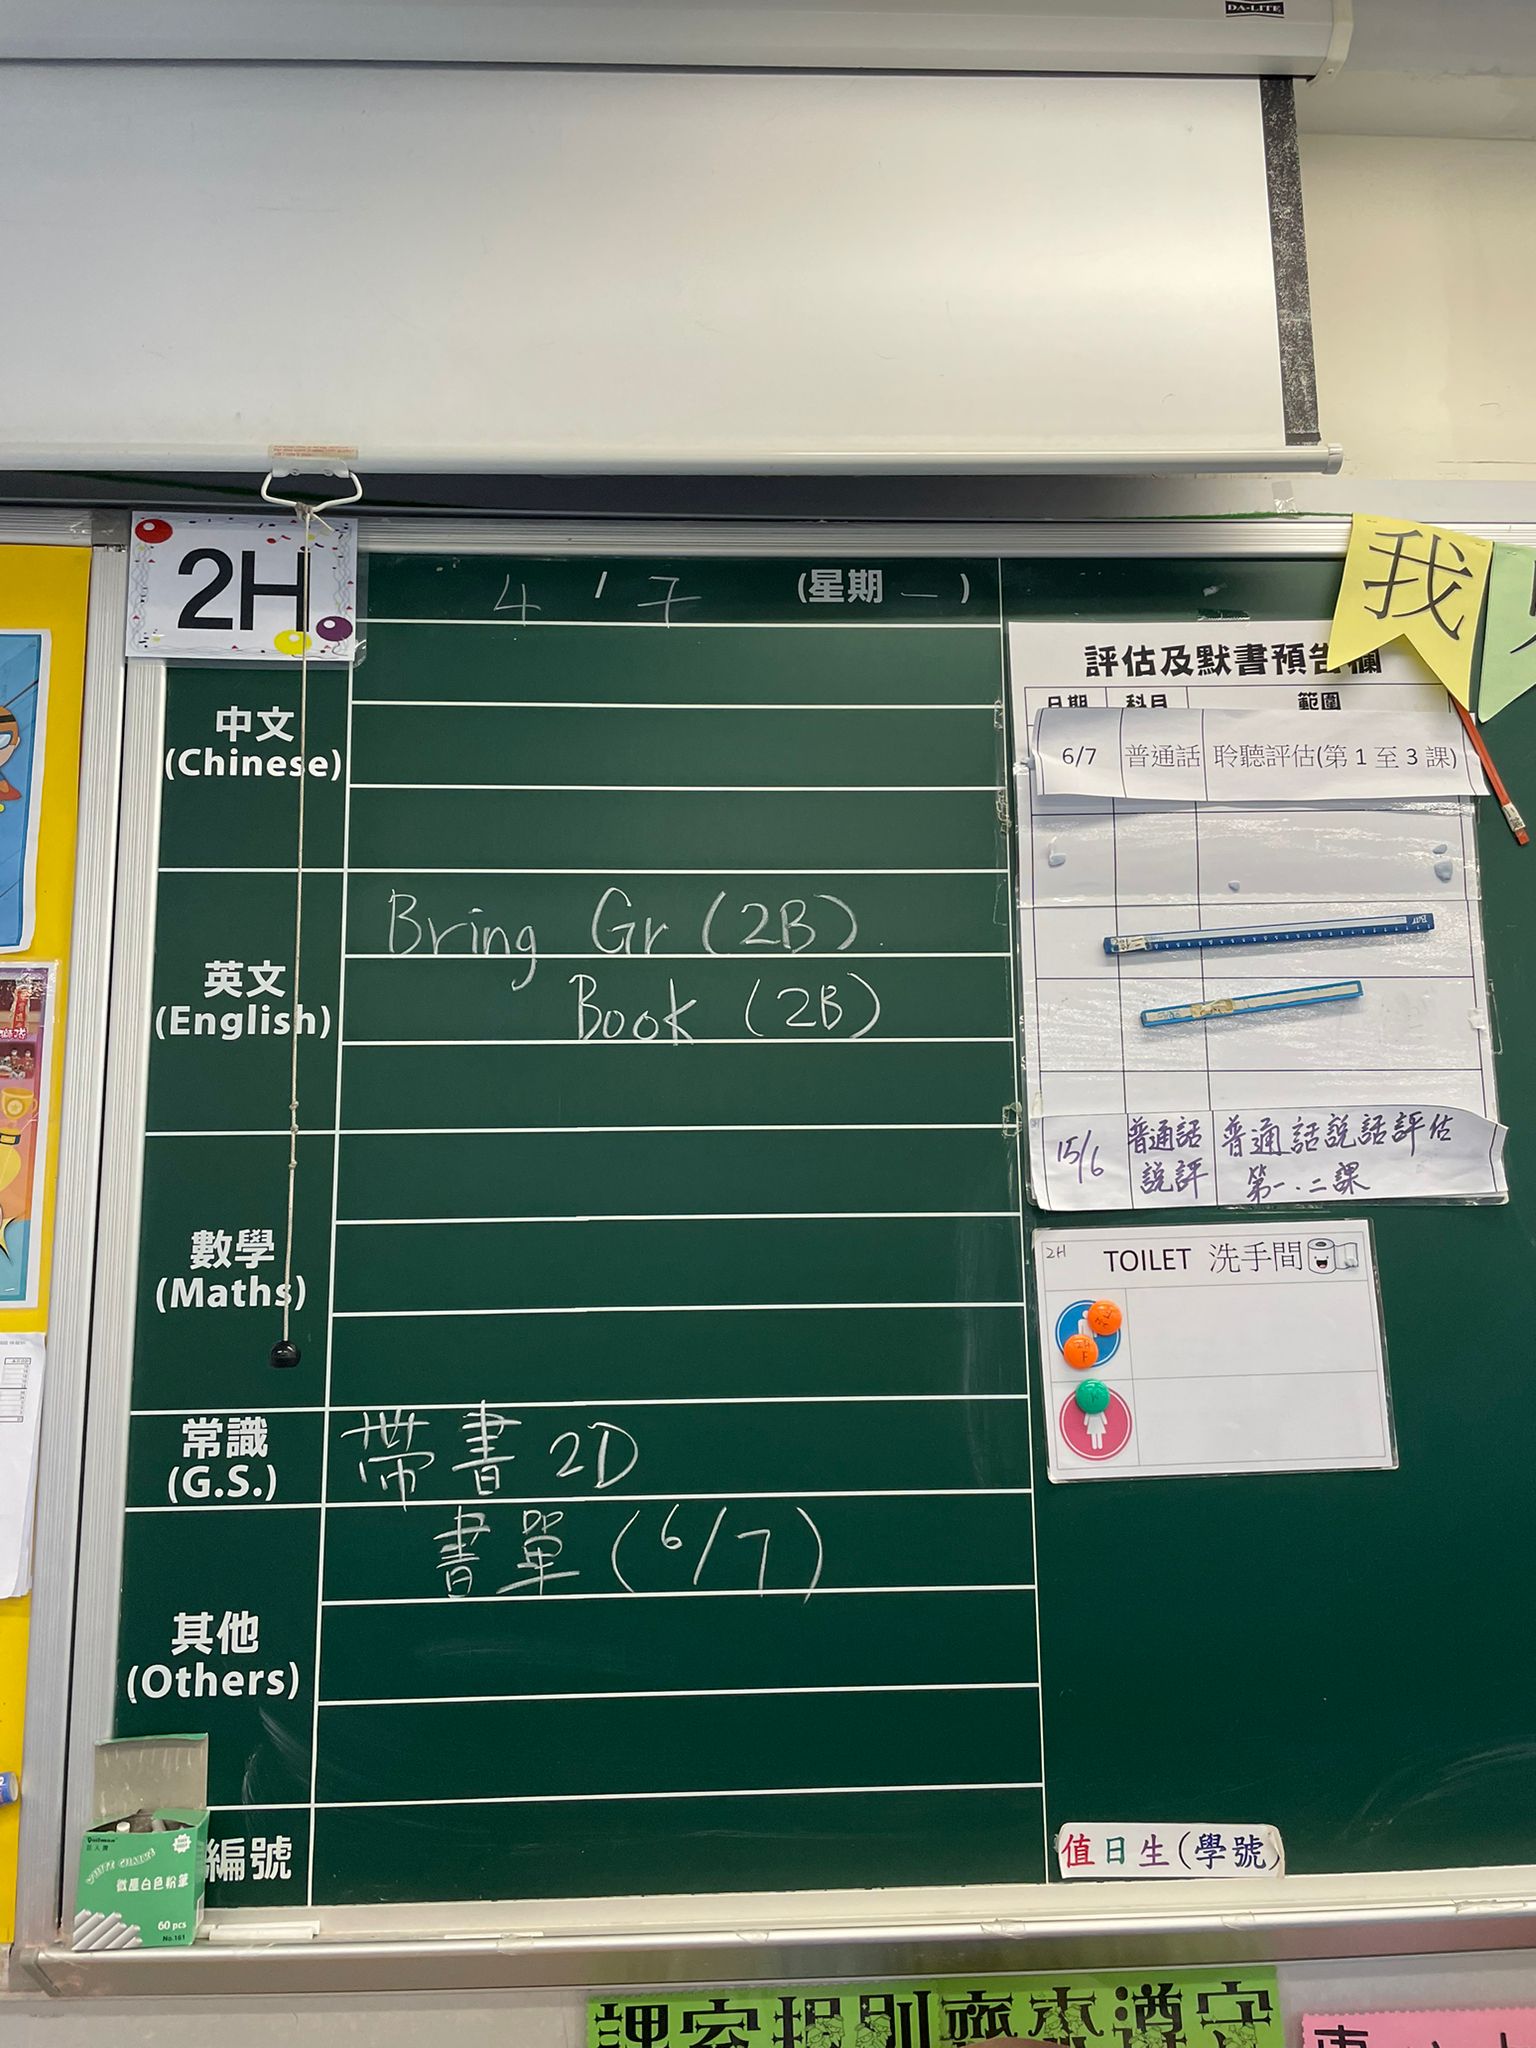 DA-LITE
2H
4 ' 7 (星期 一 )
中文
(Chinese)
英文
(English)
Bring Gr (2B).
Book (2B)
數學
(Maths)
常識
(G.S.)
帶書 2D
其他
(Others)
書單 (6/7)
編號
我
評估及默書預告欄
日期 科目 範圍
6/7 普通話 聆聽評估(第 1 至 3 課)
15/6 普通話說評 普通話說話評估第一、二課
2H TOILET 洗手間
值日生(學號)
微塵白色粉筆
60 pcs
No.161
課室規則齊來遵守